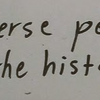 erse pe
the histo